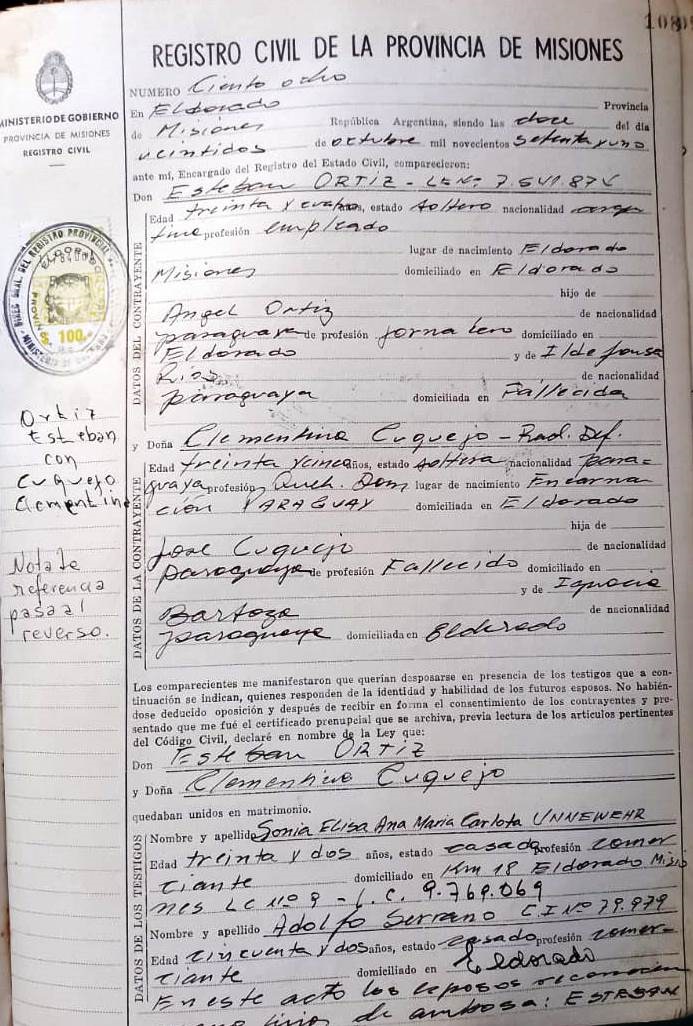 108
REGISTRO CIVIL DE LA PROVINCIA DE MISIONES
MINISTERIO DE GOBIERNO
PROVINCIA DE MISIONES
REGISTRO CIVIL
NUMERO Ciento ocho
En Eldorado Provincia
de Misiones República Argentina, siendo las doce del día
veintidos de octubre mil novecientos setenta y uno
ante mí, Encargado del Registro del Estado Civil, comparecieron:
Don Esteban ORTIZ - LE Nº 7.541.87
DATOS DEL CONTRAYENTE
Edad treinta y años, estado soltero nacionalidad argen
tina profesión empleado
lugar de nacimiento Eldorado
Misiones domiciliado en Eldorado
hijo de
Angel Ortiz de nacionalidad
paraguaya de profesión jornalero domiciliado en
Eldorado y de Ildefonsa
Rios de nacionalidad
paraguaya domiciliada en Fallecida
y Doña Clementina Cuquejo - Rad. Def.
DATOS DE LA CONTRAYENTE
Edad treinta y cinco años, estado soltera nacionalidad para-
guaya profesión Queh. Dom lugar de nacimiento Encarna
ción PARAGUAY domiciliada en Eldorado
hija de
José Cuquejo de nacionalidad
paraguaya de profesión Fallecido domiciliado en
y de Ignacia
Bartoza de nacionalidad
paraguaya domiciliada en Eldorado
Los comparecientes me manifestaron que querían desposarse en presencia de los testigos que a con-
tinuación se indican, quienes responden de la identidad y habilidad de los futuros esposos. No habién-
dose deducido oposición y después de recibir en forma el consentimiento de los contrayentes y pre-
sentado que me fué el certificado prenupcial que se archiva, previa lectura de los artículos pertinentes
del Código Civil, declaré en nombre de la Ley que:
Don Esteban ORTIZ
y Doña Clementina Cuquejo
quedaban unidos en matrimonio.
DATOS DE LOS TESTIGOS
Nombre y apellido Sonia Elisa Ana Maria Carlota UNNEWEHR
Edad treinta y dos años, estado casada profesión comer
ciante domiciliado en Km 18 Eldorado Misio
nes LC Nº 9 - L.C. 9.769.069
Nombre y apellido Adolfo Serrano C I Nº 79.979
Edad cincuenta y dos años, estado casado profesión comer-
ciante domiciliado en Eldorado
En este acto los esposos reconocen
de ambos a: ESTEBAN
$ 100.-
Ortiz
Esteban
con
Cuquejo
Clementina
Nota de
referencia
pasa al
reverso.